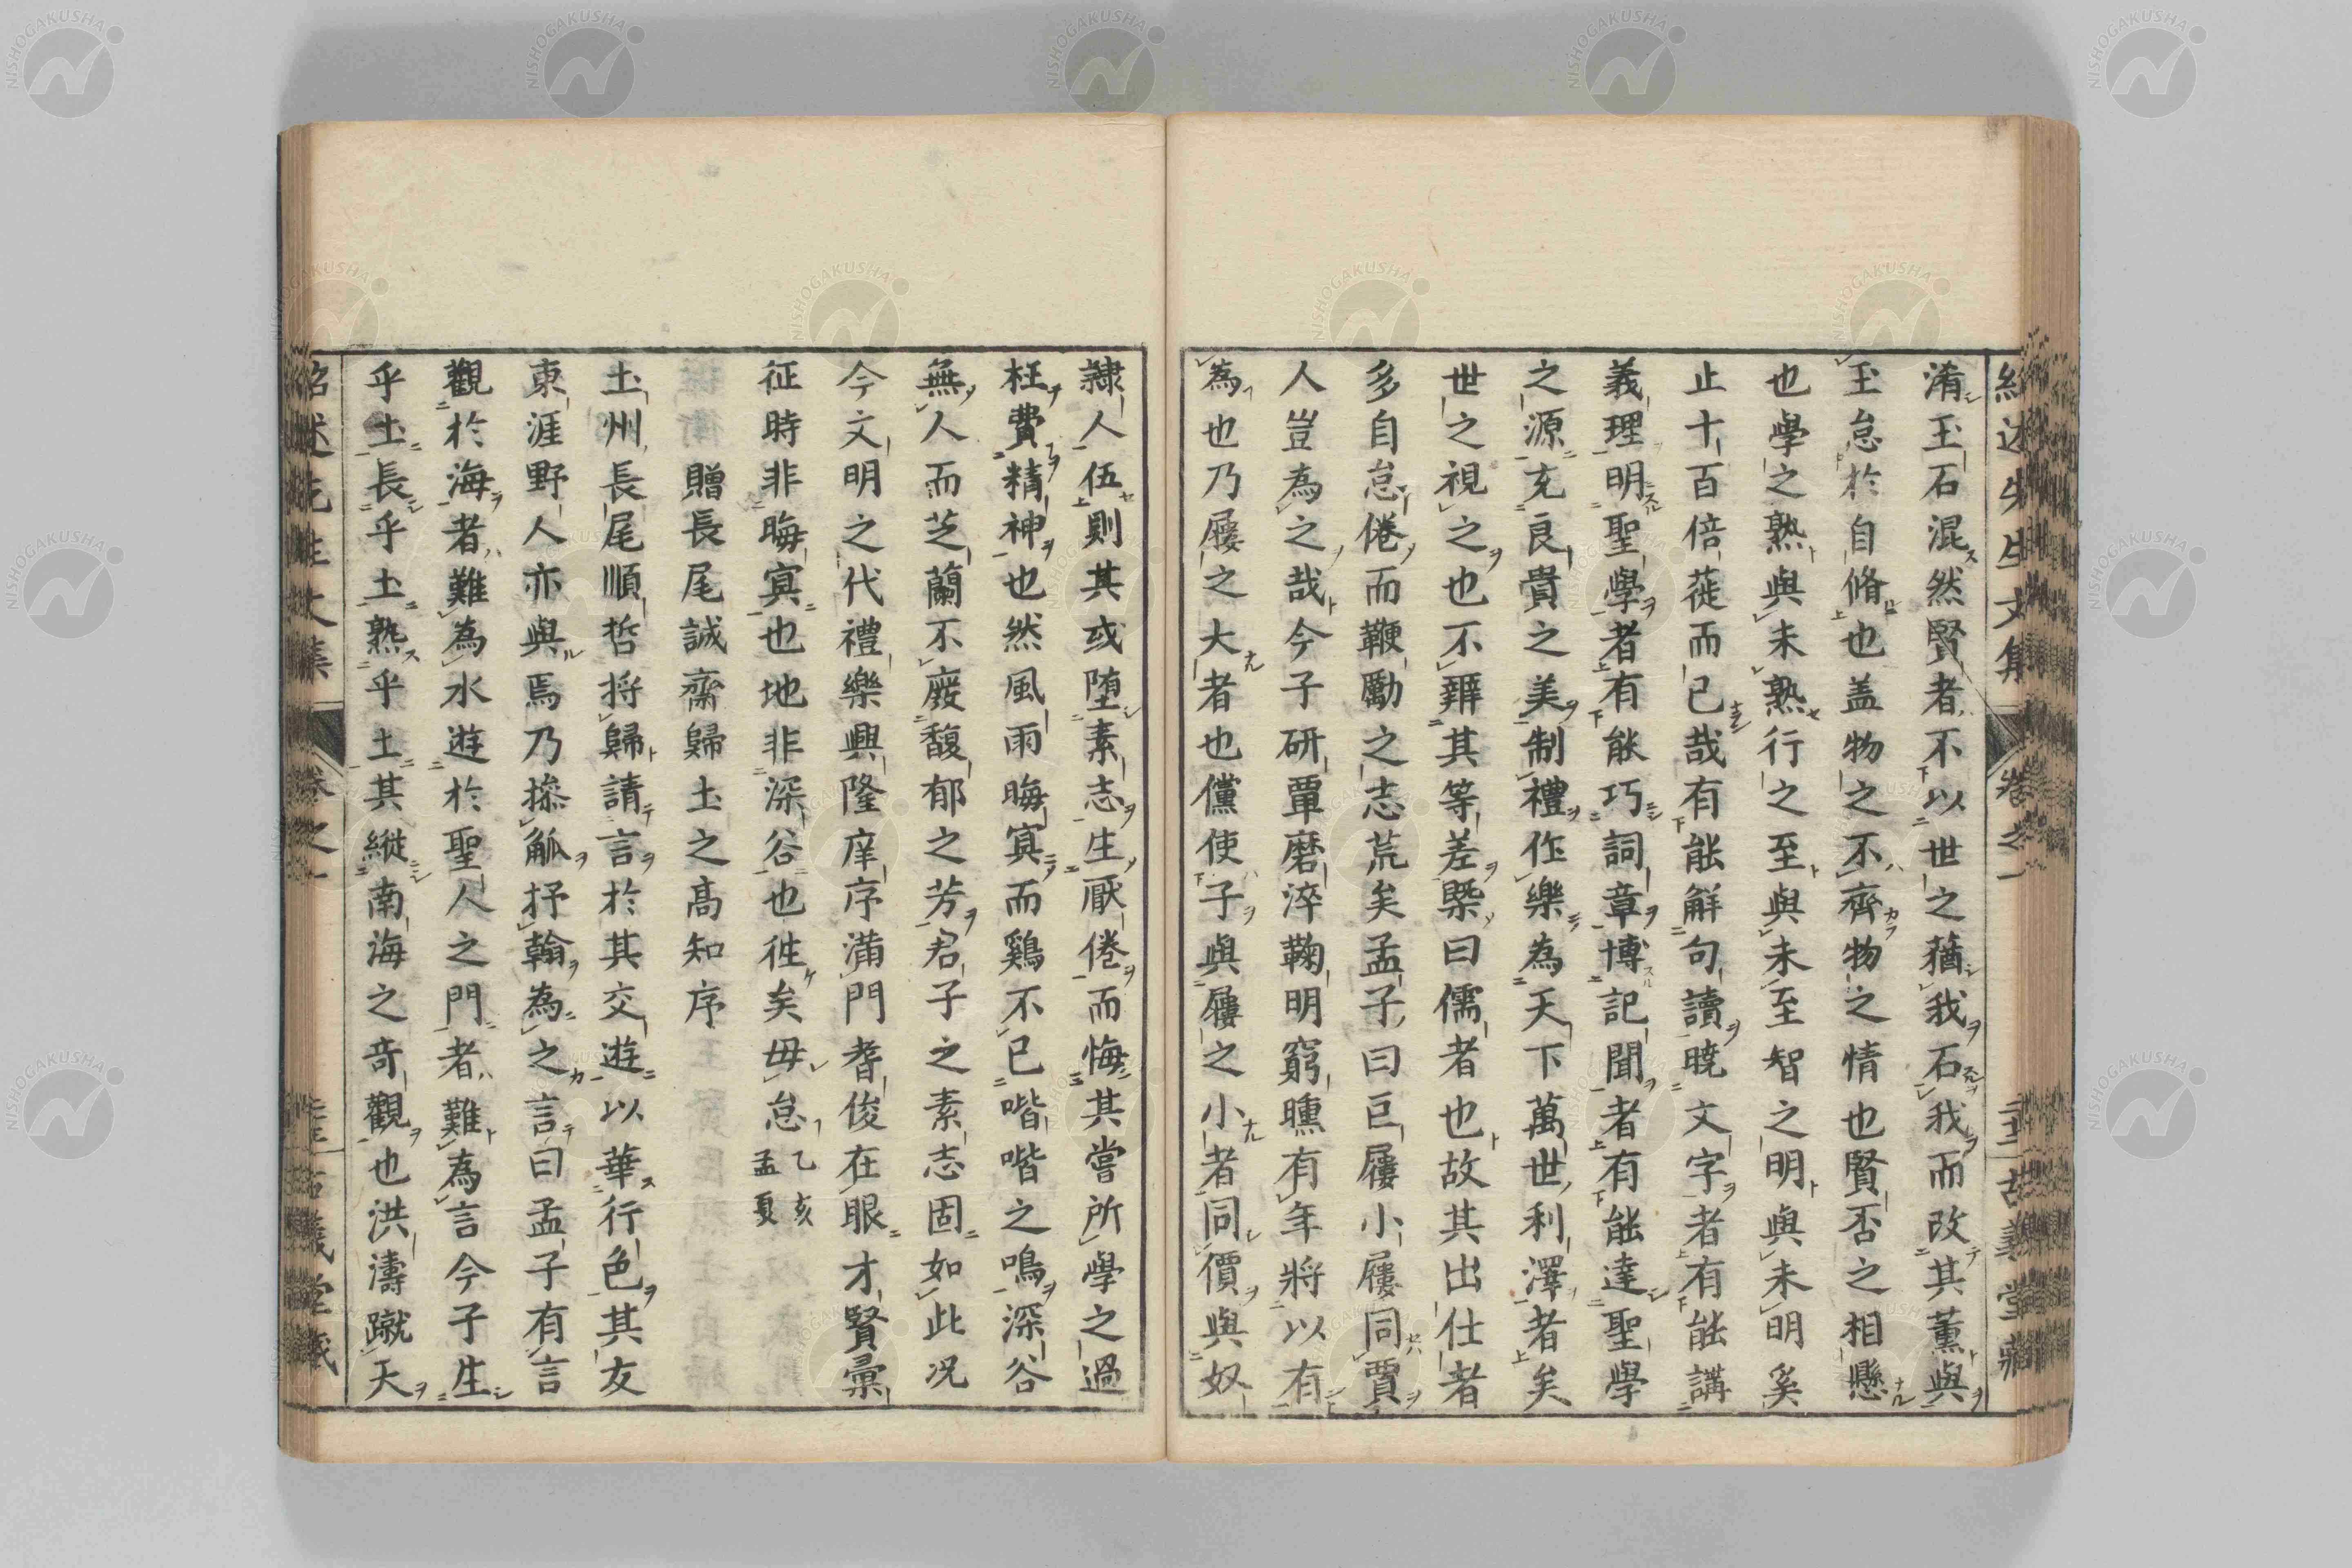 紹述先生文集 卷之一 古義堂藏
淆玉石混然賢者不以世之蕕我石我而改其薫與
玉怠於自脩也盖物之不齊物之情也賢否之相懸
也學之熟與未熟行之至與未至智之明與未明奚
止十百倍蓰而已哉有能解句讀曉文字者有能講
義理明聖學者有能巧詞章博記聞者有能達聖學
之源充良貴之美制禮作樂為天下萬世利澤者矣
世之視之也不辨其等差槩曰儒者也故其出仕者
多自怠倦而鞭勵之志荒矣孟子曰巨屨小屨同賈
人豈為之哉今子研覃磨淬鞠明窮曛有年將以有
為也乃屨之大者也儻使子與屨之小者同價與奴
隷人伍則其或堕素志生厭倦而悔其嘗所學之過
枉費精神也然風雨晦冥而鷄不已喈喈之鳴深谷
無人而芝蘭不廢馥郁之芳君子之素志固如此况
今文明之代禮樂興隆庠序滿門耆俊在眼才賢彙
征時非晦冥也地非深谷也徃矣毋怠乙亥孟夏
贈長尾誠齋歸土之高知序
土州長尾順哲將歸請言於其交遊以華行色其友
東涯野人亦與焉乃操觚抒翰為之言曰孟子有言
觀於海者難為水遊於聖人之門者難為言今子生
乎土長乎土熟乎土其縱南海之奇觀也洪濤蹴天
紹述先生文集 卷之一 古義堂藏
NISHOGAKUSHA